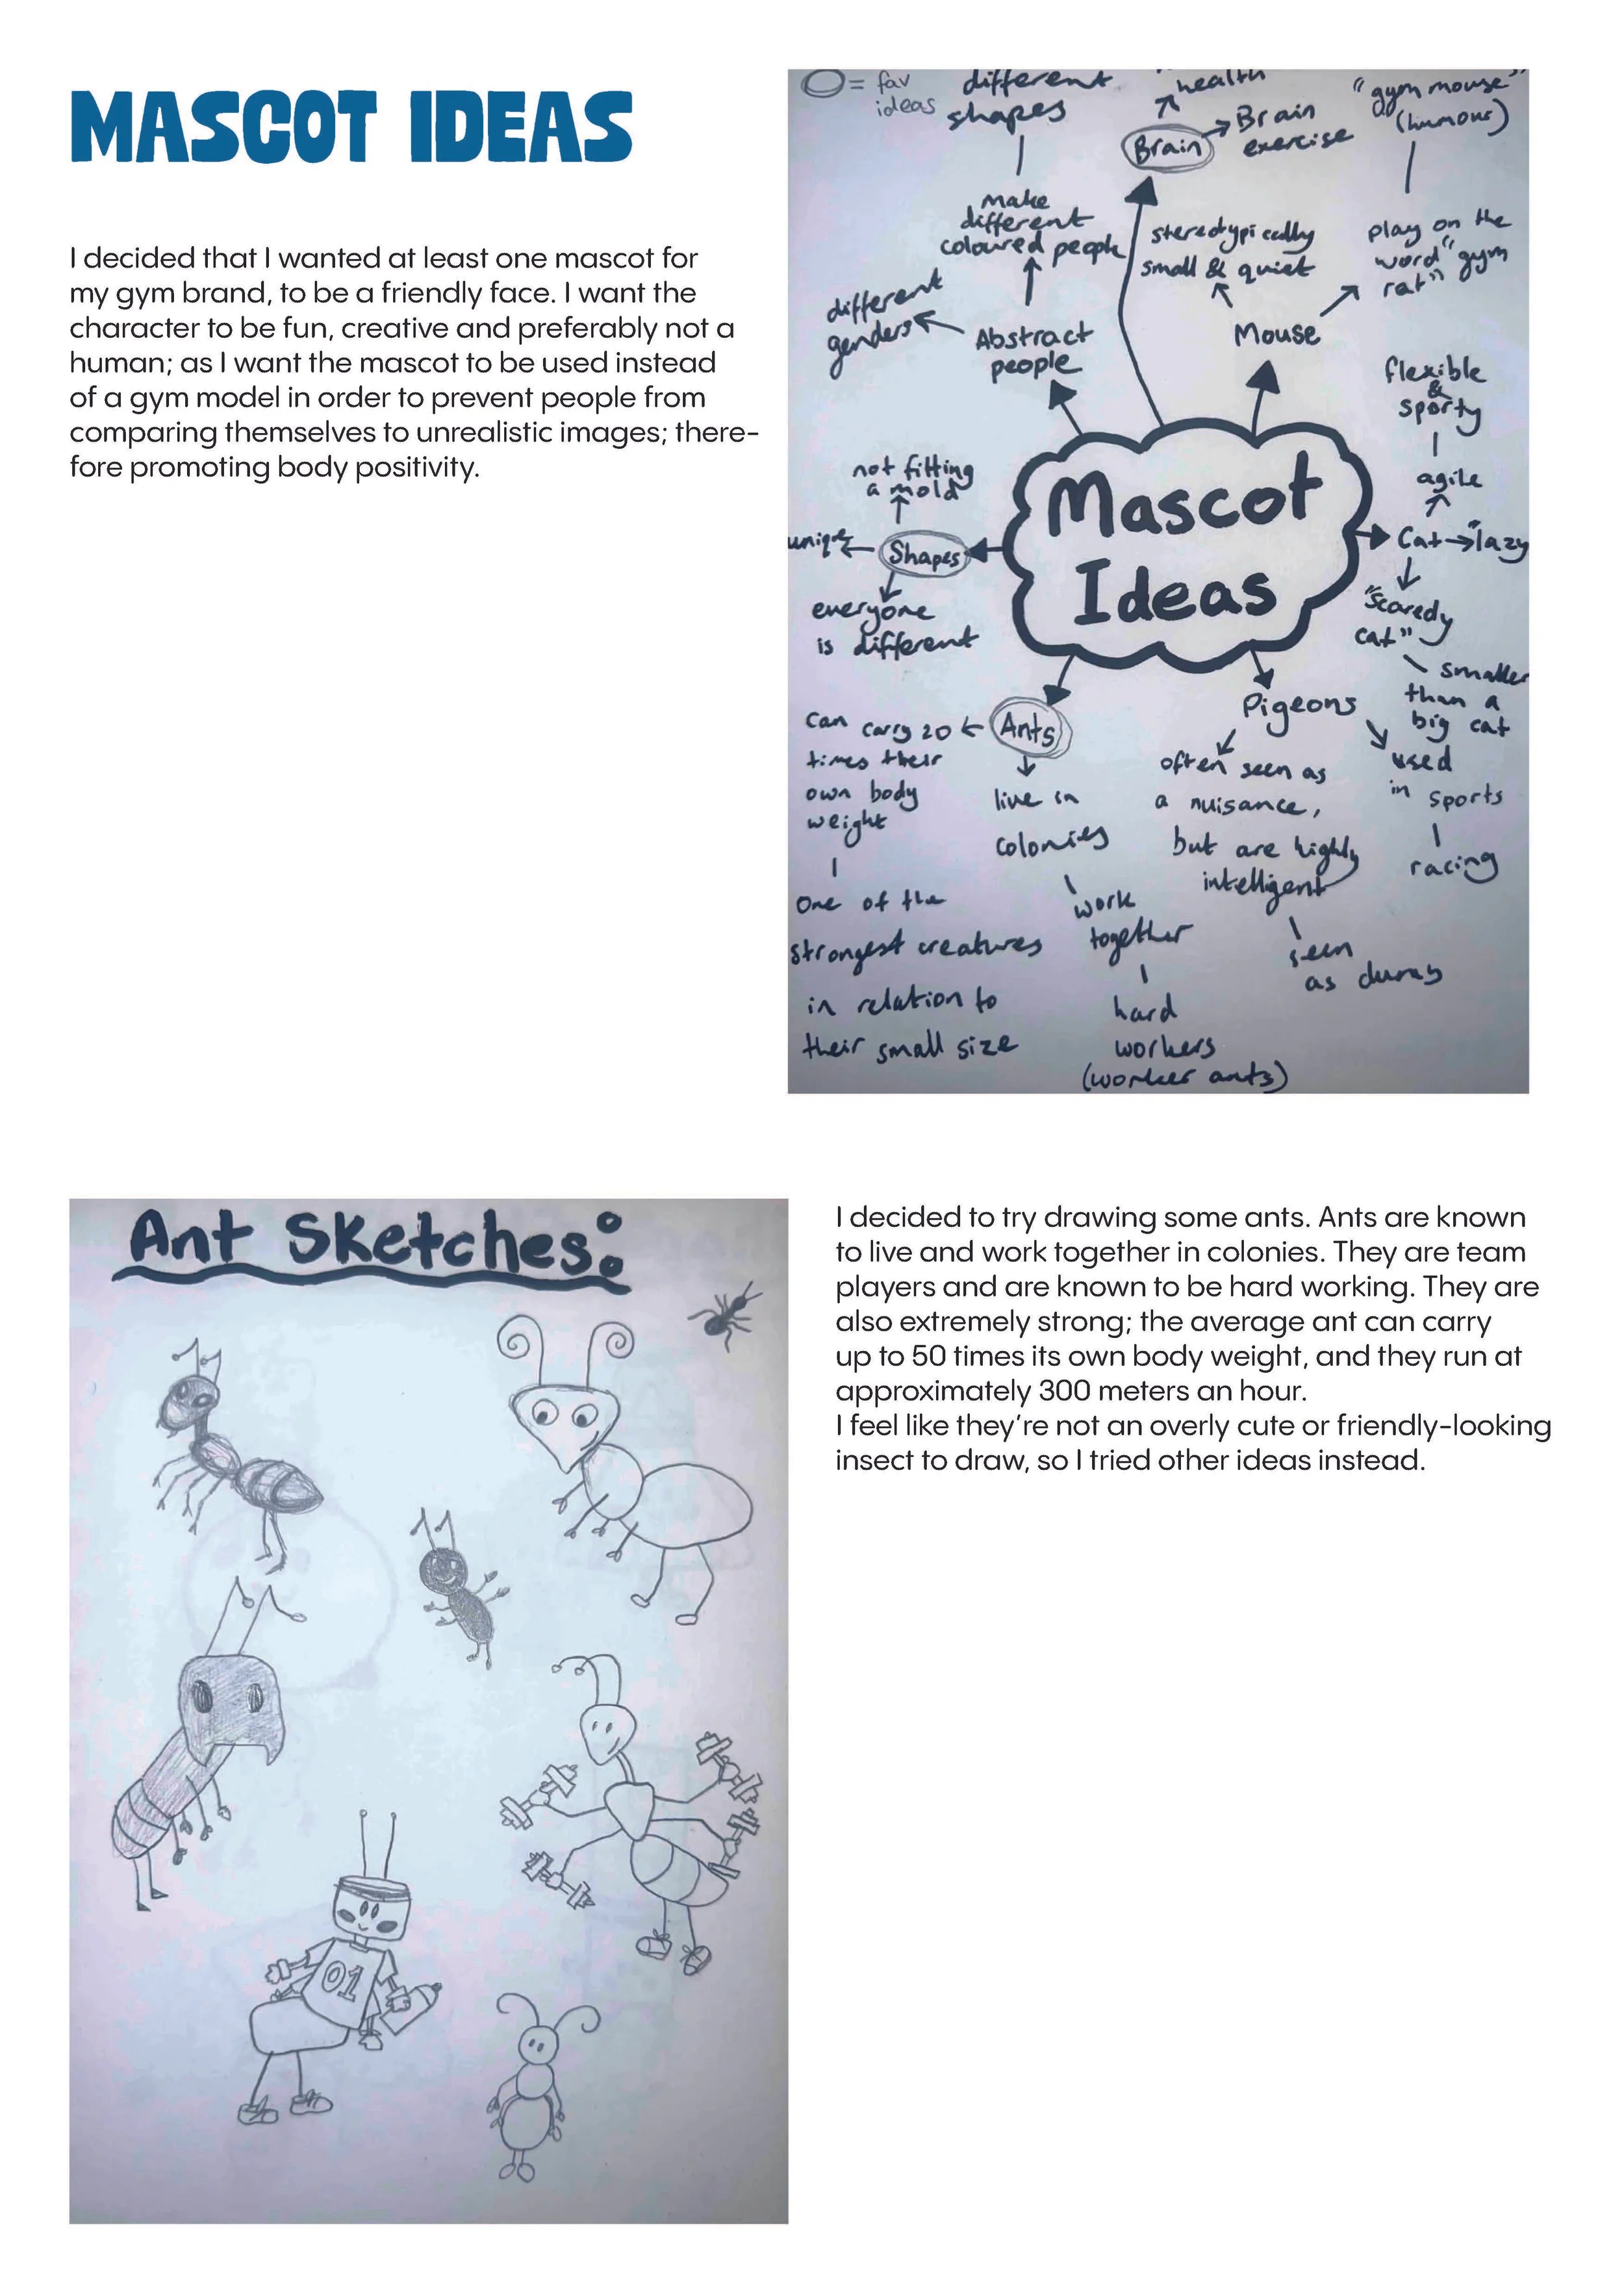 MASCOT IDEAS
I decided that I wanted at least one mascot for
my gym brand, to be a friendly face. I want the
character to be fun, creative and preferably not a
human; as I want the mascot to be used instead
of a gym model in order to prevent people from
comparing themselves to unrealistic images; there-
fore promoting body positivity.
= fav
ideas
different
shapes
make
different
coloured people
different
genders
Abstract
people
health
Brain
Brain
exercise
"gym mouse"
(humour)
play on the
word "gym
rat"
stereotypically
small & quiet
Mouse
flexible
&
sporty
agile
Cat
lazy
"scaredy
cat"
smaller
than a
big cat
Mascot
Ideas
not fitting
a mold
unique
Shapes
everyone
is different
Ants
can carry 20
times their
own body
weight
one of the
strongest creatures
in relation to
their small size
live in
colonies
work
together
hard
workers
(worker ants)
Pigeons
often seen as
a nuisance,
but are highly
intelligent
seen
as dumb
used
in sports
racing
Ant Sketches:
01
I decided to try drawing some ants. Ants are known
to live and work together in colonies. They are team
players and are known to be hard working. They are
also extremely strong; the average ant can carry
up to 50 times its own body weight, and they run at
approximately 300 meters an hour.
I feel like they're not an overly cute or friendly-looking
insect to draw, so I tried other ideas instead.